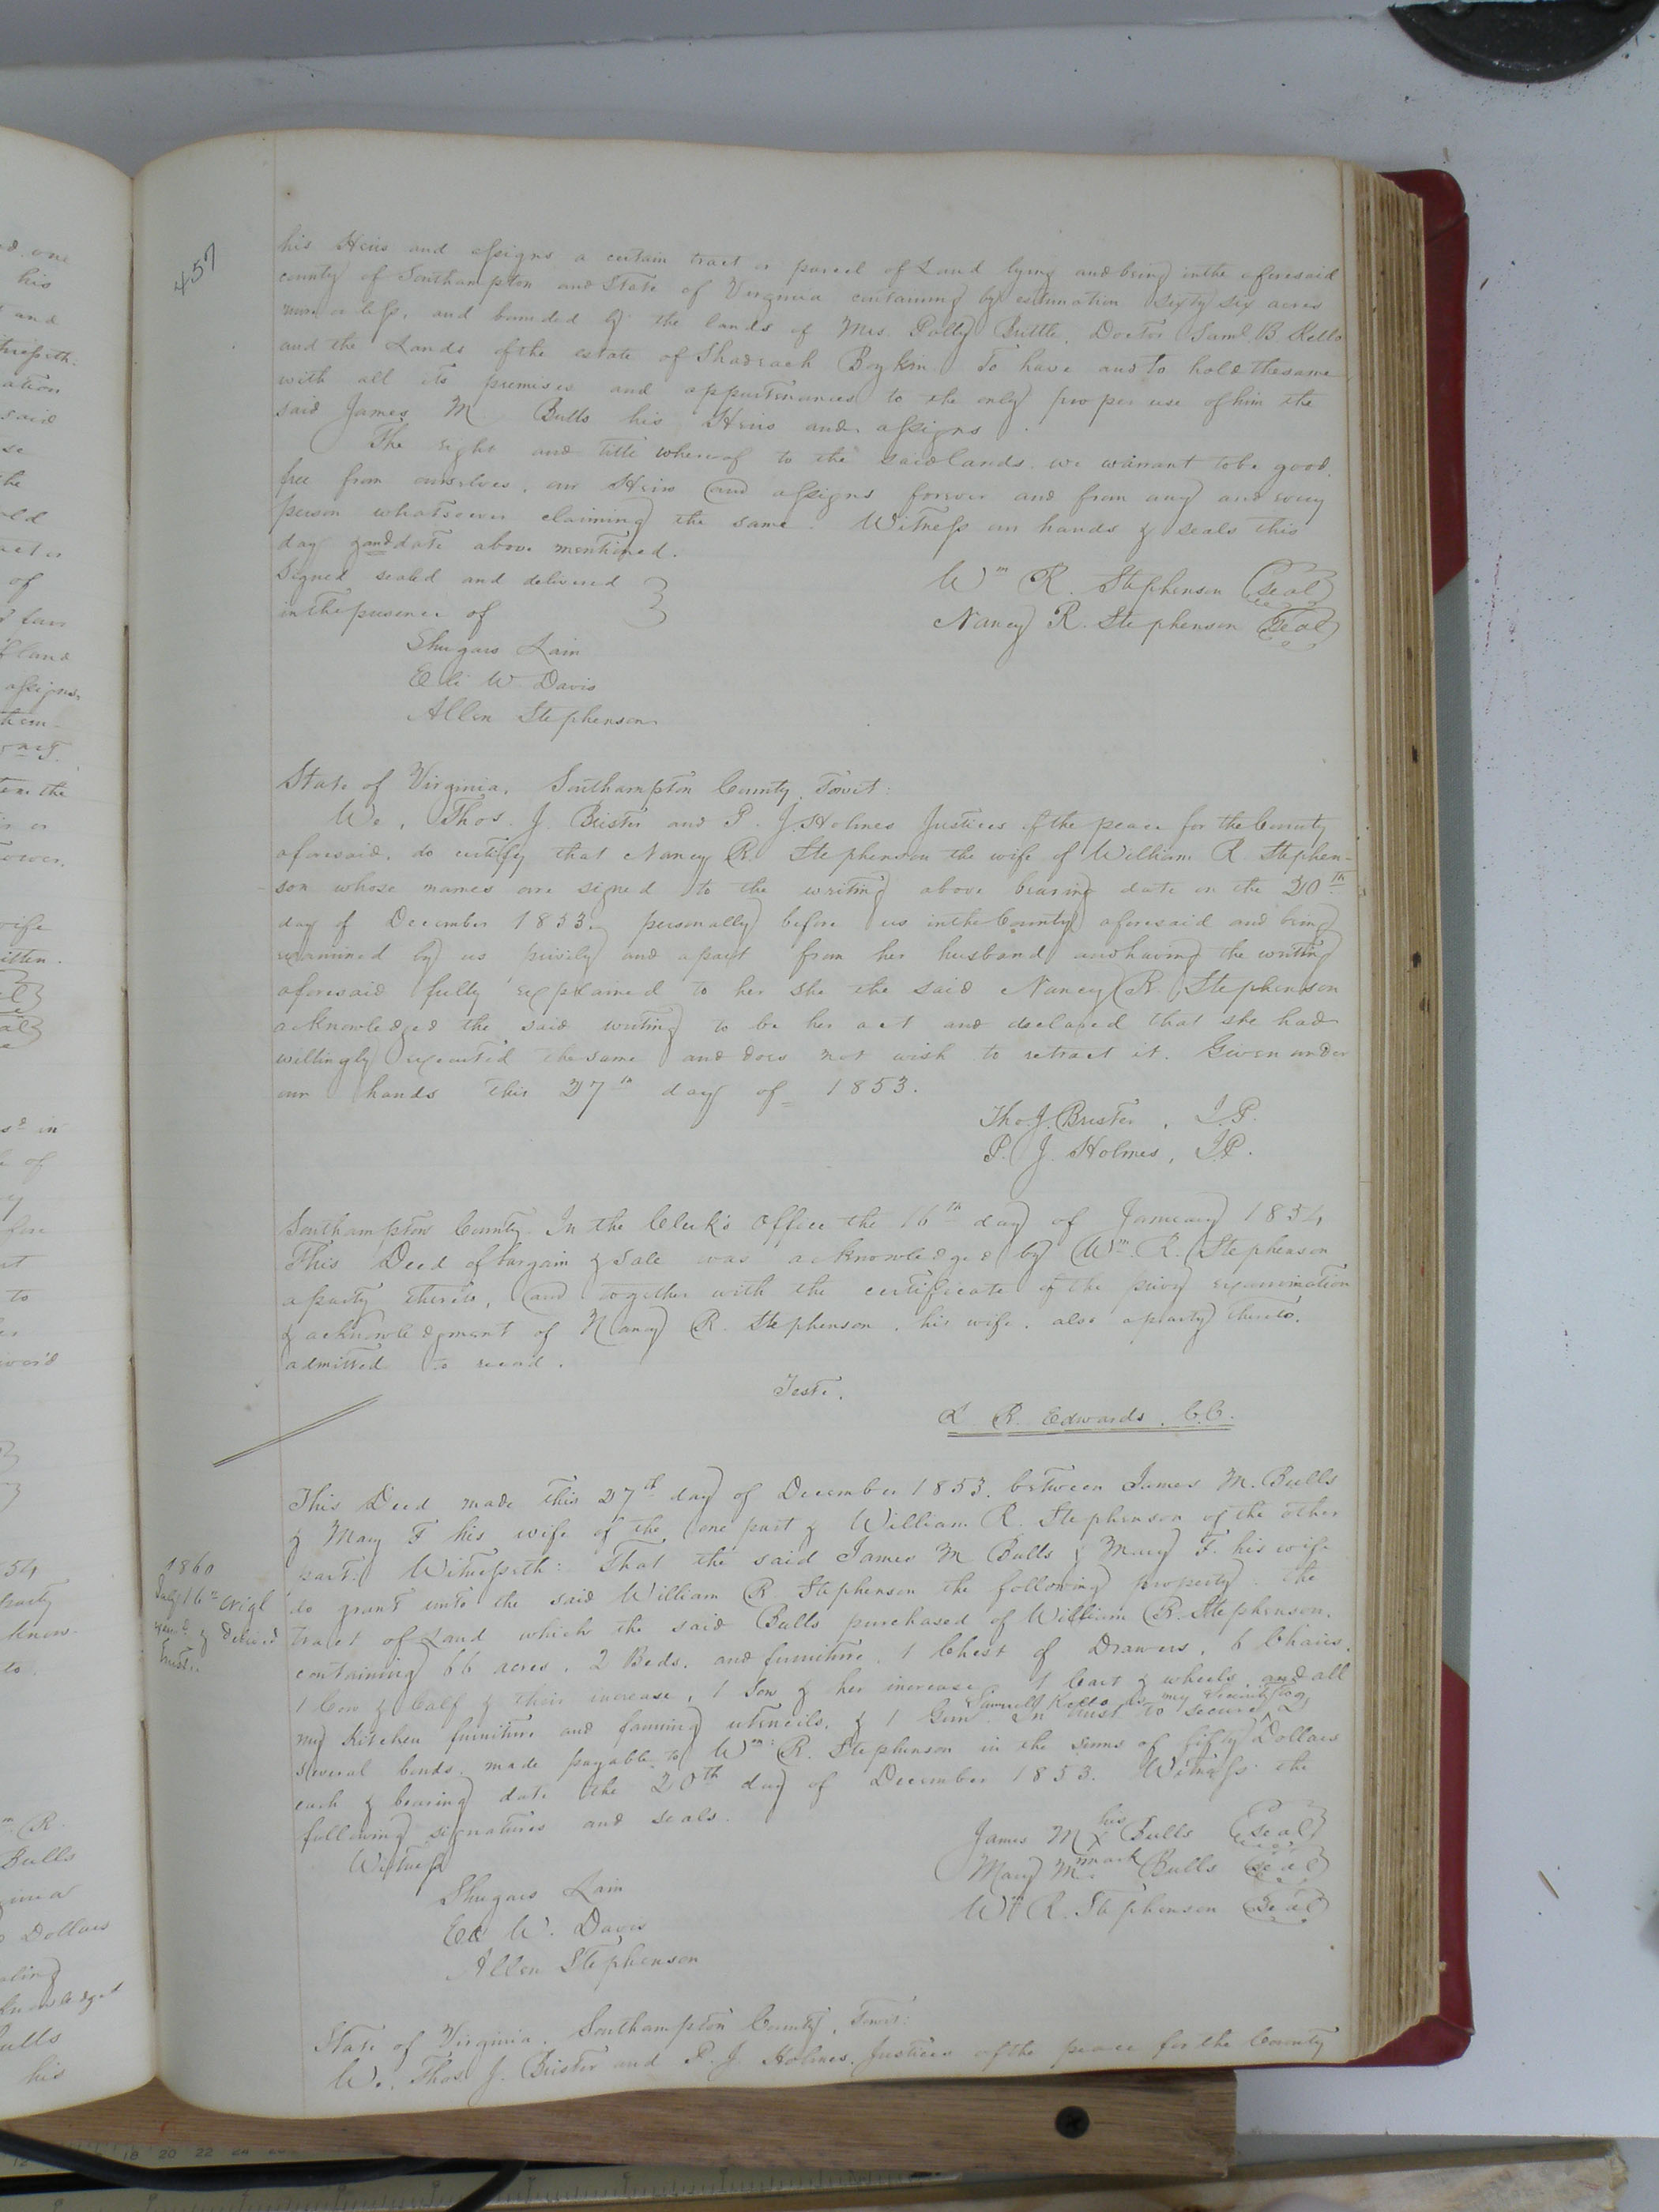 457
his Heirs and assigns a certain tract or parcel of Land lying and being in the aforesaid
county of Southampton and State of Virginia containing by estimation sixty six acres
more or less, and bounded by the lands of Mrs. Polly Buttle, Doctor Saml. B. Kello
and the Lands of the estate of Shadrach Boykin To have and to hold the same
with all its premises and appurtenances to the only proper use of him the
said James M Bulls his Heirs and assigns.
The right and title whereof to the said lands we warrant to be good.
free from ourselves, our Heirs and assigns forever and from any and every
person whatsoever claiming the same. Witness our hands & seals this
day & and date above mentioned.
Signed sealed and delivered
in the presence of
Wm R. Stephenson (seal)
Nancy R. Stephenson (seal)
Shugars Lain
Eli W Davis
Allen Stephenson
State of Virginia, Southampton County, Towit:
We, Thos. J. Brister and P. J. Holmes Justices of the peace for the County
aforesaid, do certify that Nancy R. Stephenson the wife of William R. Stephen-
son whose names are signed to the writing above bearing date on the 20th
day of December 1853, personally before us in the County aforesaid and being
examined by us privily and apart from her husband and having the writing
aforesaid fully explained to her she the said Nancy R. Stephenson
acknowledged the said writing to be her act and declared that she had
willingly executed the same and does not wish to retract it. Given under
our hands this 27th day of 1853.
Tho. J. Brister, J.P.
P. J. Holmes, J.P.
Southampton County. In the Clerk's Office the 16th day of January 1854
This Deed of bargain & sale was acknowledged by Wm. R. Stephenson
a party thereto, and together with the certificate of the privy examination
& acknowledgment of Nancy R. Stephenson, his wife, also a party thereto.
admitted to record.
Teste.
L R. Edwards. C.C.
This Deed made this 27th day of December 1853. between James M. Bulls
& Mary F his wife of the one part & William R. Stephenson of the other
part. Witnesseth: That the said James M Bulls & Mary F. his wife
do grant unto the said William R Stephenson the following property. The
tract of Land which the said Bulls purchased of William R. Stephenson.
containing 66 acres, 2 Beds, and furniture, 1 Chest of Drawers, 6 Chairs,
1 Cow & Calf & their increase, 1 Sow & her increase 1 Cart & wheels, and all
my Kitchen furniture and farming utencils, & 1 Gun In trust to secure 2
several bonds made payable to Wm. R. Stephenson in the sums of fifty Dollars
each & bearing date the 20th day of December 1853. Witness the
following signatures and seals.
1860
16th
Witness
James M his X mark Bulls (seal)
Mary M. Bulls (seal)
Wm R. Stephenson (seal)
Shugars Lain
Eli W. Davis
Allen Stephenson
State of Virginia. Southampton County, Towit:
We, Thos J. Brister and P. J. Holmes, Justices of the peace for the County